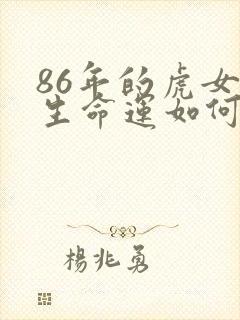 86年的虎女
生命運如何
楊兆勇